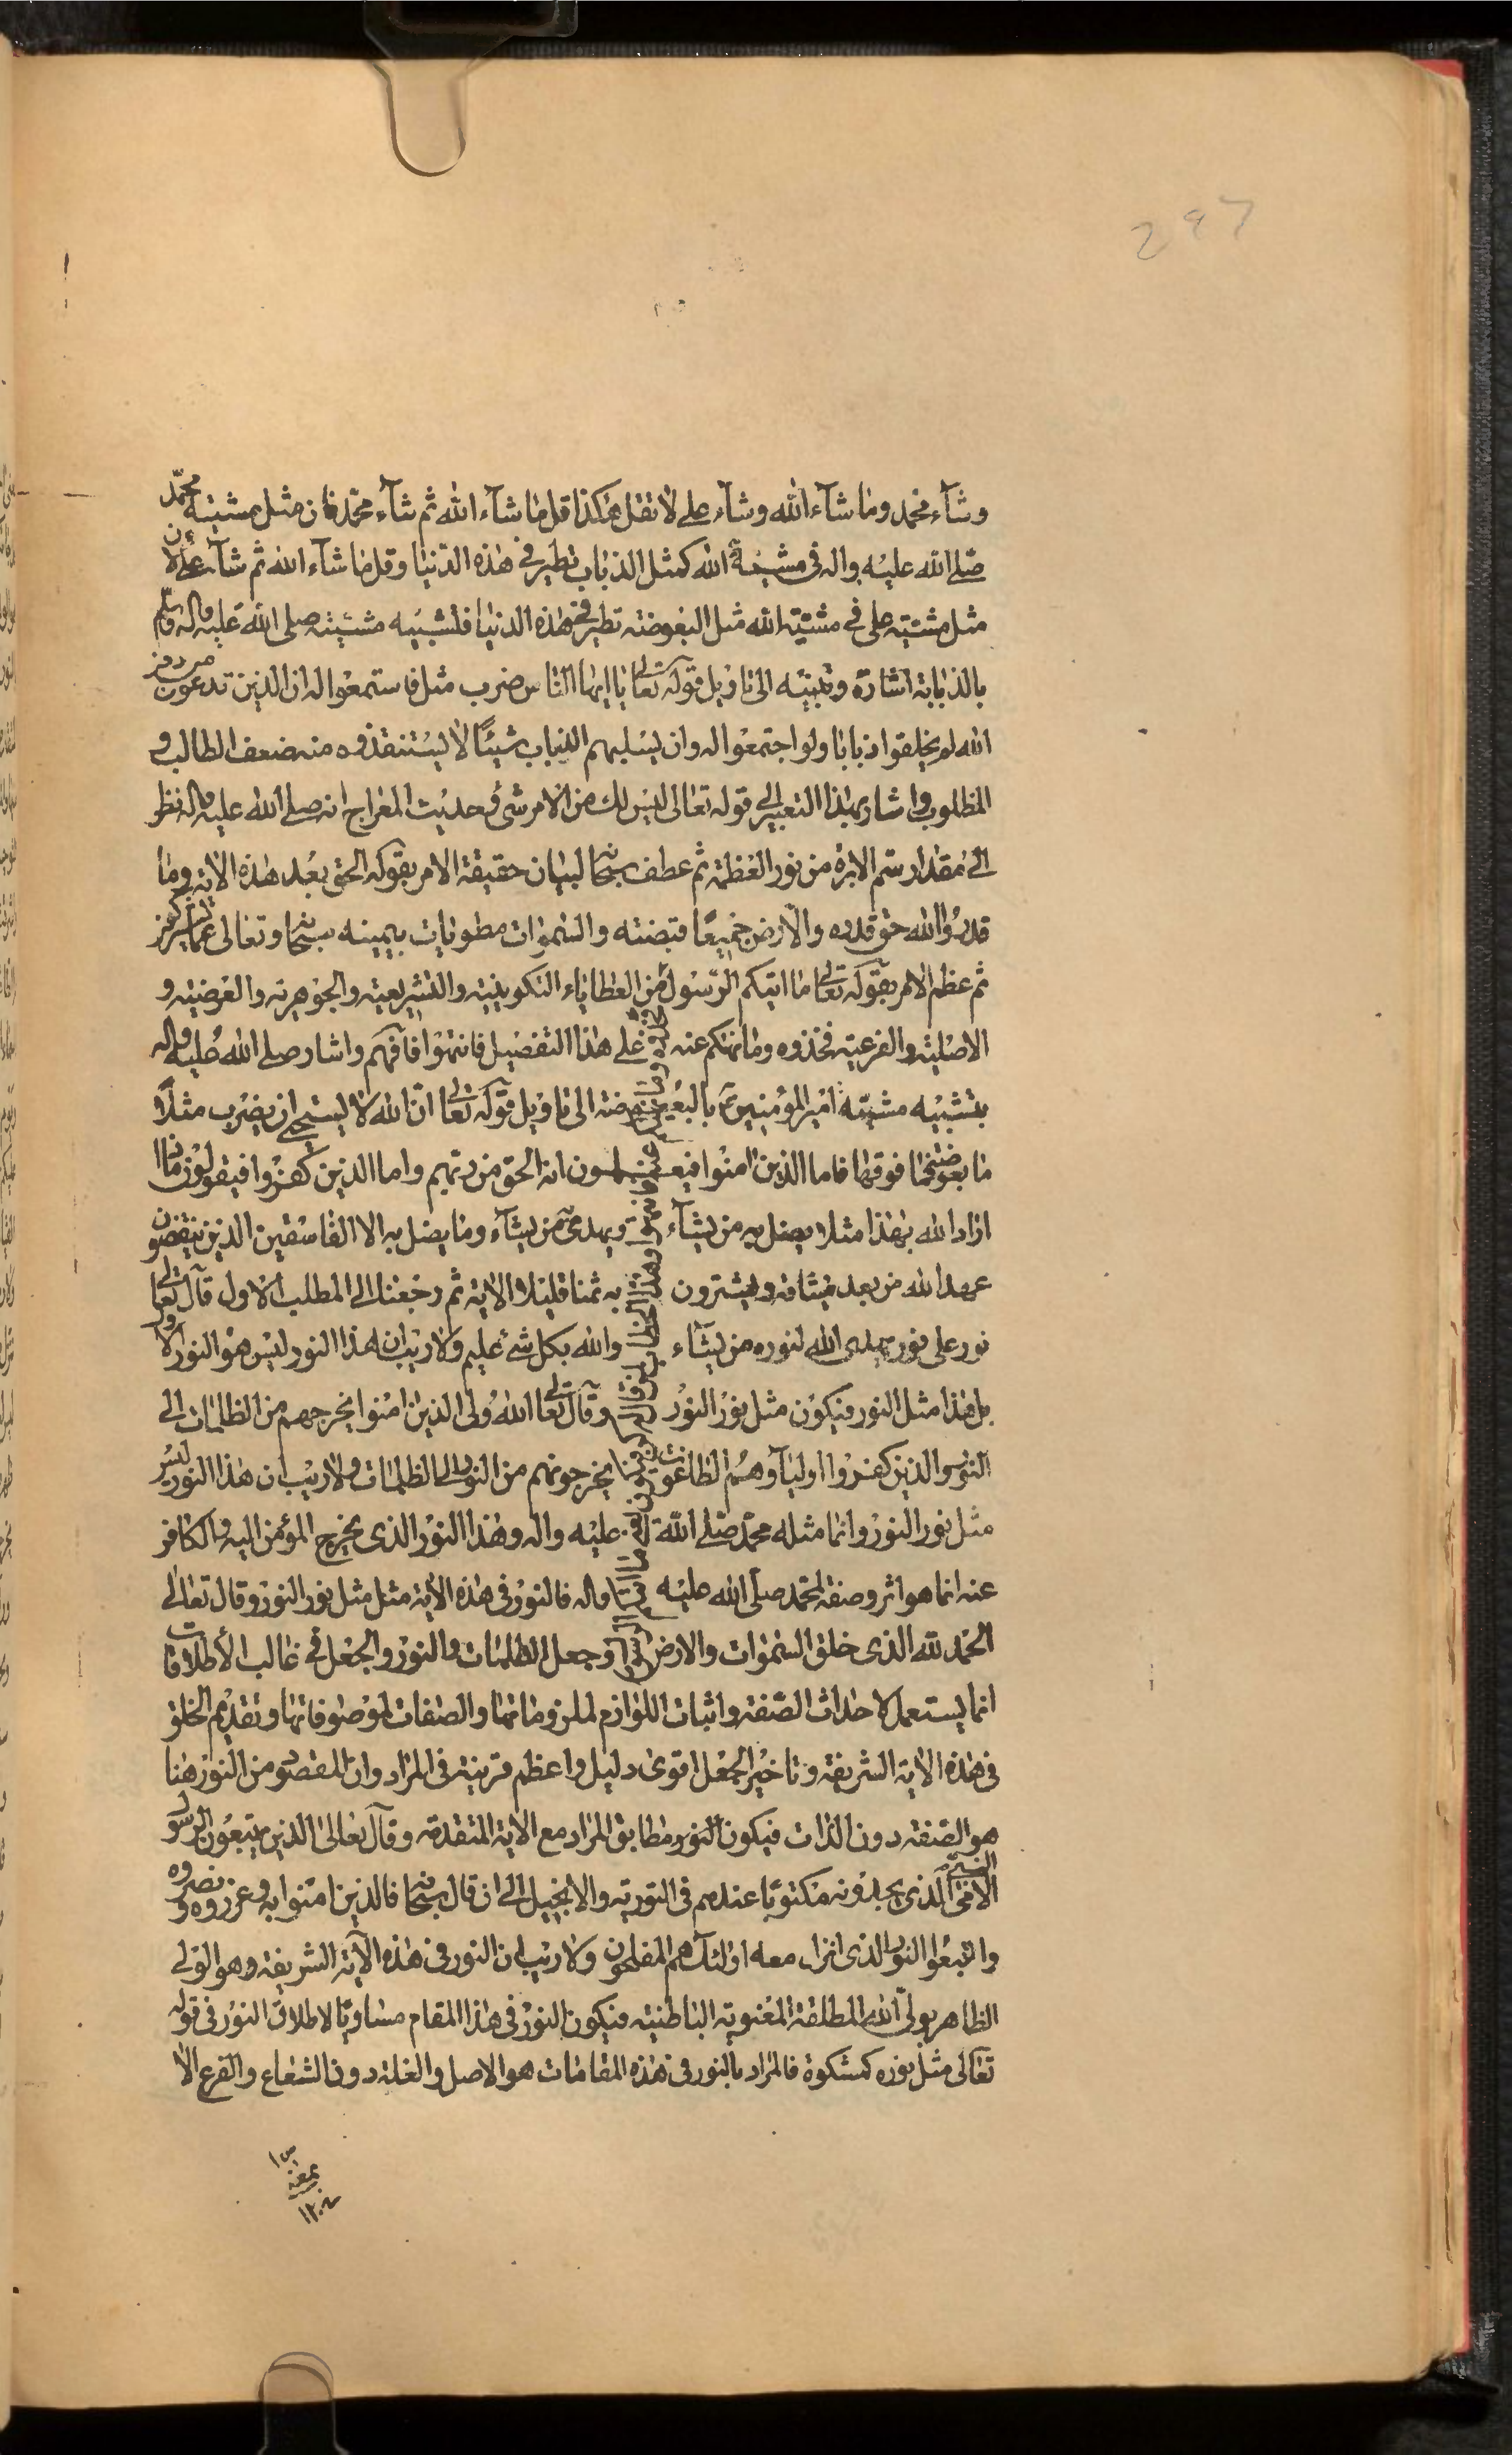 297
وشآء محمد وما شآء الله وشآء على لا تقل هكذا قل ما شآء الله ثم شآء محمد فان مثل مشيته محمّد
صلى الله عليه واله فى مشيئة الله كمثل الذباب تطير فى هذه الدنيا وقل ما شآء الله ثم شآء على لان
مثل مشيته على فى مشيّة الله مثل البعوضة تطير فى هذه الدنيا فتشبيه مشيّته صلى الله عليه واله وسلم
بالذبابة اشارة وتنبيه الى تاويل قوله تعالى يا ايها الناس ضرب مثل فاستمعوا له ان الذين تدعون من دون
الله لو يخلقوا ذبابا ولو اجتمعوا له وان يسلبهم الذباب شيئًا لا يستنقذوه منه ضعف الطالب و
المطلوب واشار بهذا التعبير الى قوله تعالى ليس لك من الامر شئ وفى حديث المعراج انه صلى الله عليه واله نظر
الى مقدار سم الابرة من نور العظمة ثم عطف سبحانه لبيان حقيقة الامر بقوله الحق بعد هذه الاية وما
قدروا الله حق قدره والارض جميعًا قبضته والسموات مطويات بيمينه سبحانه وتعالى عما يشركون
ثم عظم الامر بقوله تعالى ما اتيكم الرّسول من العطاياء التكوينية والتشريعية والجوهرية والعرضية و
الاصلية والفرعية فخذوه وما نهيكم عنه على هذا التفصيل فانتهوا فافهم واشار صلى الله عليه واله
بتشبيه مشيّة امير المؤمنين ع بالبعوضة الى تاويل قوله تعالى انّ الله لا يستحيى ان يضرب مثلًا
ما بعوضة فما فوقها فاما الذين امنوا فيعلمون انه الحق من ربهم واما الذين كفروا فيقولون ماذا
اراد الله بهذا مثلا يضل به من يشآء ويهدى من يشآء وما يضل به الا الفاسقين الذين ينقضون
عهد الله من بعد ميثاقه ويشترون به ثمنا قليلا الاية ثم رجعنا الى المطلب الاول قال تعالى
نور على نور يهدى الله لنوره من يشآء والله بكل شئ عليم ولا ريب ان هذا النور ليس هو النور الاول
بل هذا مثل النور فيكون مثل نور النور وقال تعالى الله ولى الذين امنوا يخرجهم من الظلمات الى
النور والذين كفروا اوليآؤهم الطاغوت يخرجونهم من النور الى الظلمات ولا ريب ان هذا النور ليس
مثل نور النور وانما مثله محمّد صلى الله عليه واله وهذا النور الذى يخرج المؤمن اليه والكافر
عنه انما هو اثر وصفة لمحمد صلى الله عليه واله فالنور فى هذه الاية مثل مثل نور النور وقال تعالى
الحمد لله الذى خلق السموات والارض وجعل الظلمات والنور والجعل فى غالب الأطلاقات
انما يستعمل لاحداث الصّفة واثبات اللوازم لملزوماتها والصفات لموصوفاتها وتقديم الخلق
فى هذه الاية الشريفة وتاخير الجعل اقوى دليل واعظم قرينة فى المراد وان المقصود من النور هنا
هو الصفة دون الذات فيكون النور مطابق المراد مع الاية المتقدمة وقال تعالى الذين يتبعون الرسول
النبى الامى الذى يجدونه مكتوبًا عندهم فى التورية والانجيل الى ان قال سبحانه فالذين امنوا به وعزروه ونصروه
واتبعوا النور الذى انزل معه اولئك هم المفلحون ولا ريب ان النور فى هذه الآية الشريفة وهو الولى
الظاهر بولاية الله المطلقة المعنوية الباطنية فيكون النور فى هذا المقام مساويًا لاطلاق النور فى قوله
تعالى مثل نوره كمشكوة فالمراد بالنور فى هذه المقامات هو الاصل والعلة دون الشعاع والفرع الا